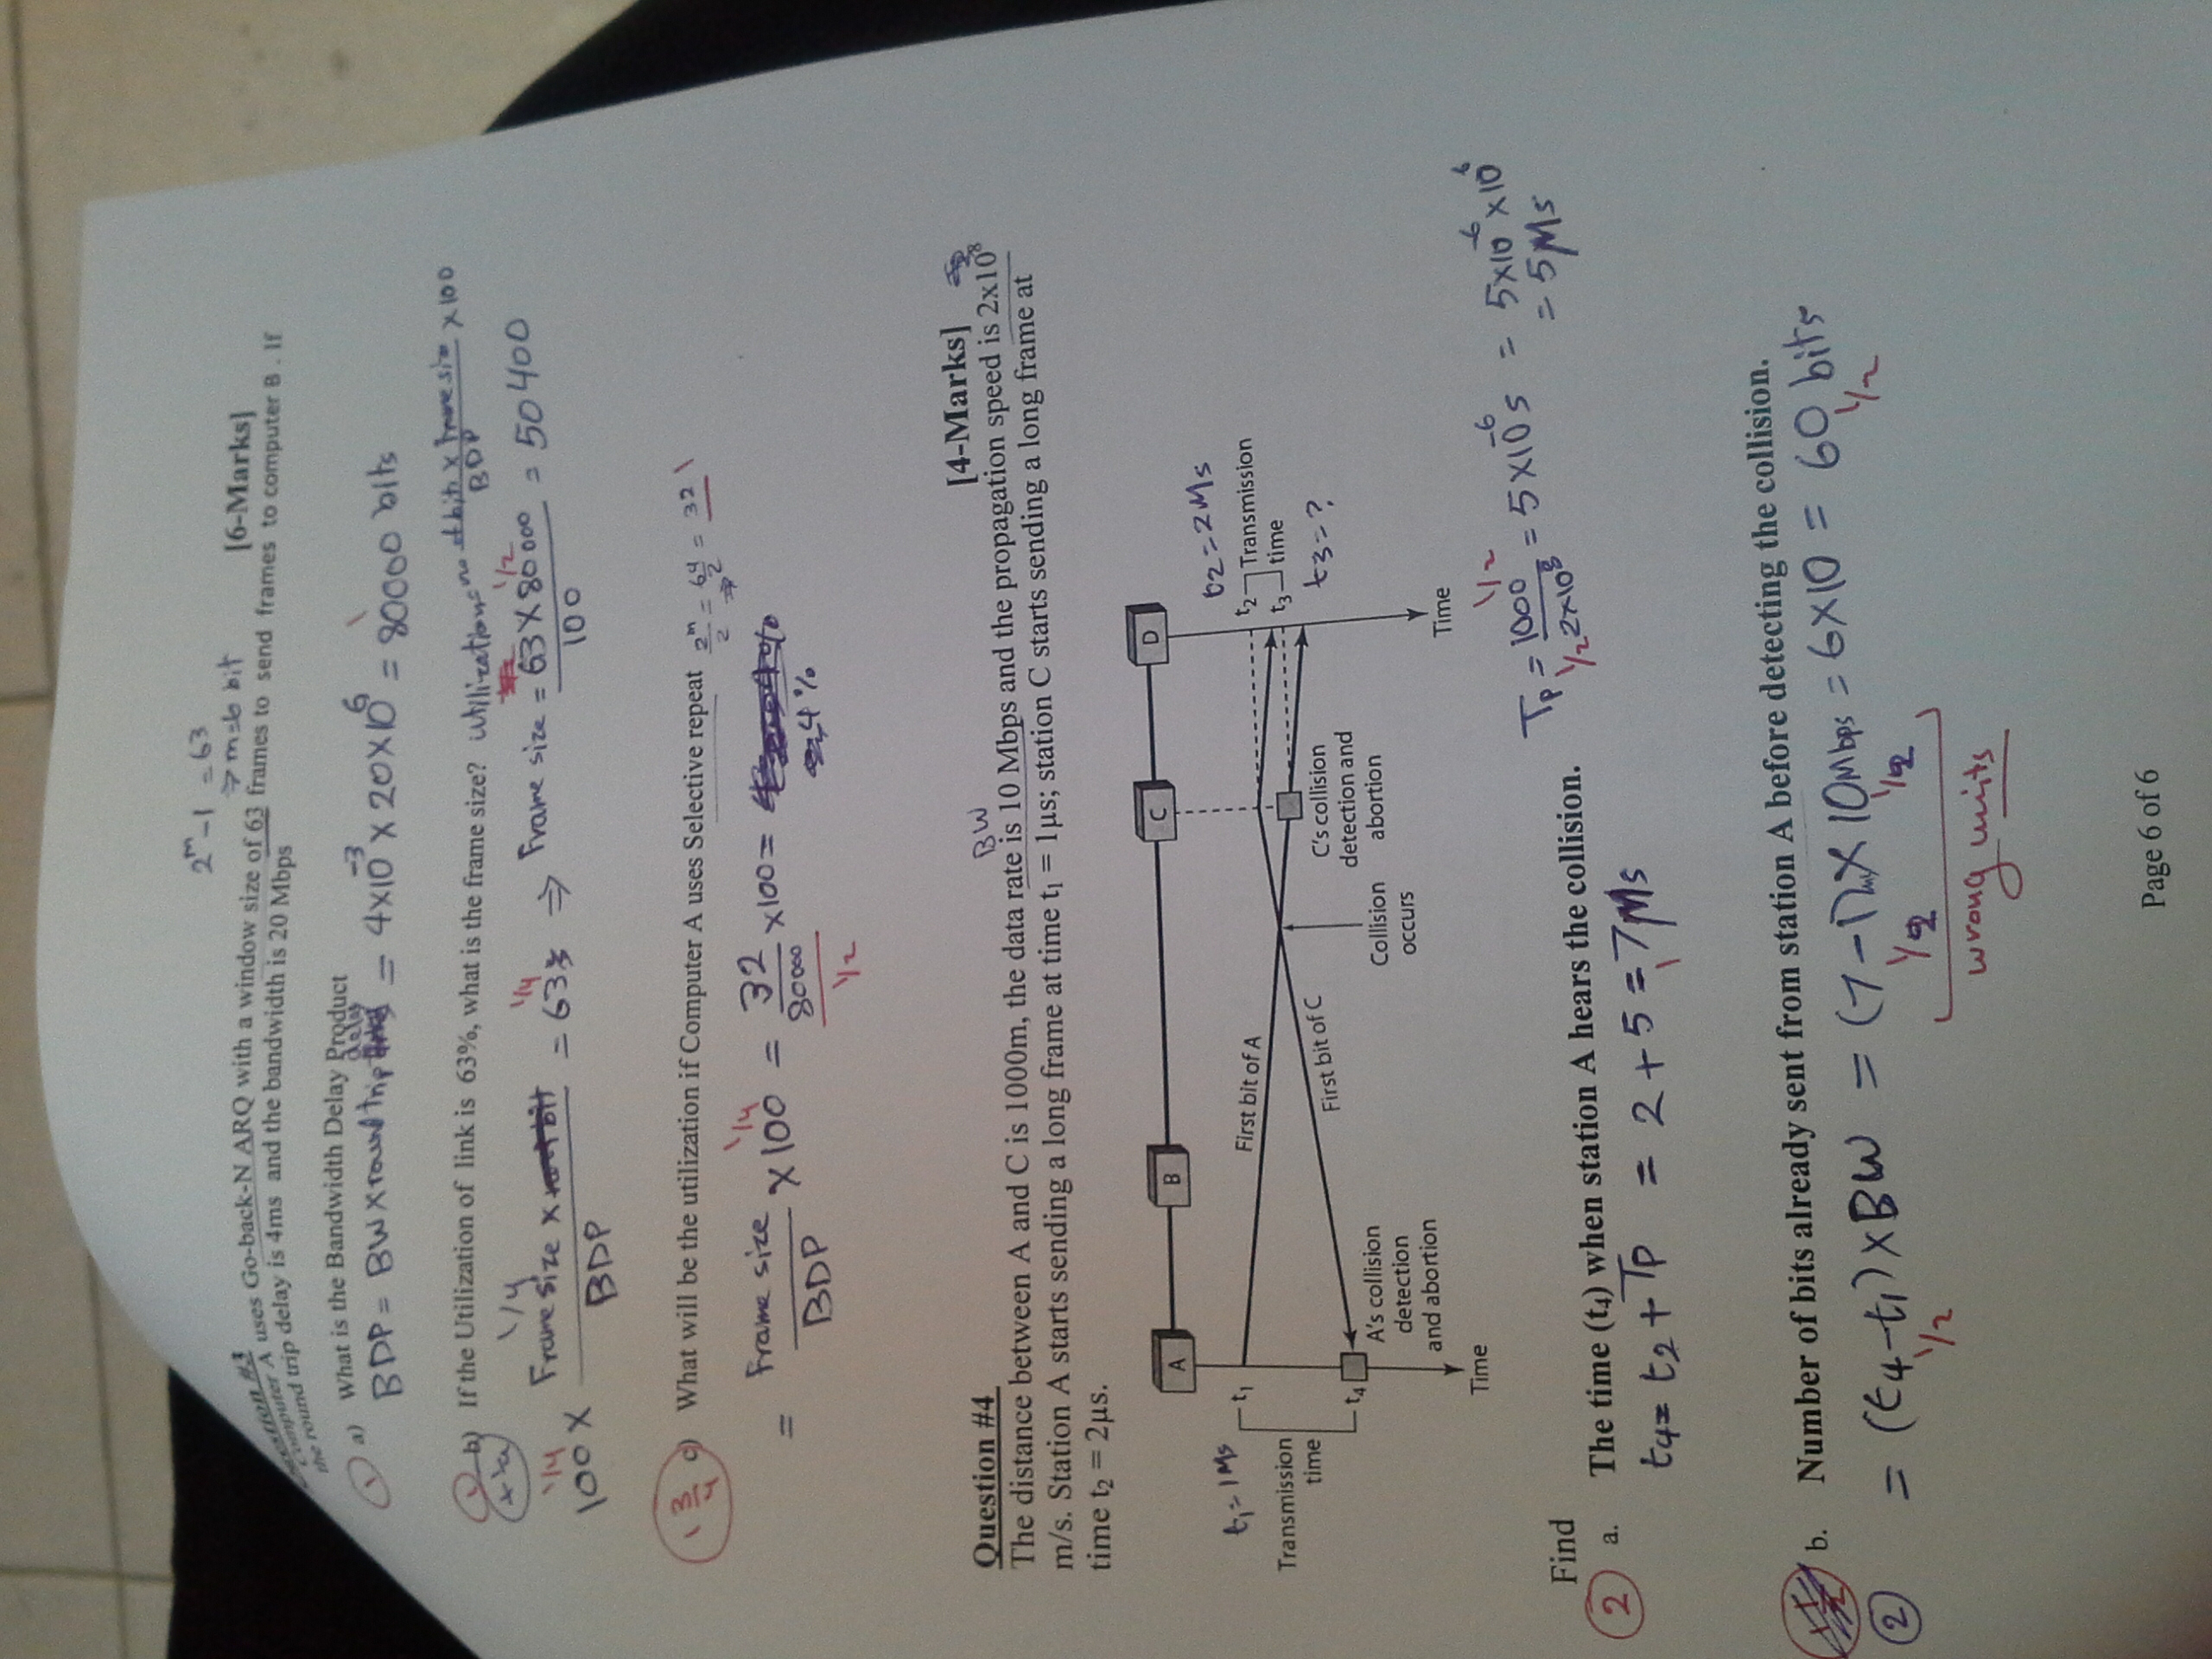 2^m - 1 = 63
⇒ m=6 bit
Question #3 [6-Marks]
Computer A uses Go-back-N ARQ with a window size of 63 frames to send frames to computer B . If
the round trip delay is 4ms and the bandwidth is 20 Mbps
1 a) What is the Bandwidth Delay Product
delay
BDP = BW x round trip = 4x10^-3 x 20x10^6 = 80000 bits
1
b) If the Utilization of link is 63%, what is the frame size? Utilization = no of bits x Frame size / BDP x 100
1/4 1/4 1/4 1/2
100 x Frame size x / BDP = 63% ⇒ Frame size = 63 x 80000 / 100 = 50400
1 3/4 c) What will be the utilization if Computer A uses Selective repeat 2^m/2 = 64/2 = 32 1
= Frame size / BDP x 100 = 32 / 80000 x 100 =
1/4
4 %
1/2
Question #4 [4-Marks]
BW
The distance between A and C is 1000m, the data rate is 10 Mbps and the propagation speed is 2x10^8
m/s. Station A starts sending a long frame at time t1 = 1μs; station C starts sending a long frame at
time t2 = 2μs.
A B C D
t1 = 1Ms t2 = 2Ms
t1 First bit of A t2 Transmission
Transmission t3 time
time First bit of C C's collision t3 = ?
t4 detection and
A's collision Collision abortion
detection occurs
and abortion
Time
Time
Tp = 1000 / 2x10^8 = 5x10^-6 s = 5x10^-6 x 10^6
1/2 1/2
= 5Ms
Find
2 a. The time (t4) when station A hears the collision.
t4 = t2 + Tp = 2 + 5 = 7Ms
1
b. Number of bits already sent from station A before detecting the collision.
2 = (t4 - t1) x BW = (7 - 1) x 10Mbps = 6x10 = 60 bits
1/2 1/2 1/2 1/2
wrong units
Page 6 of 6